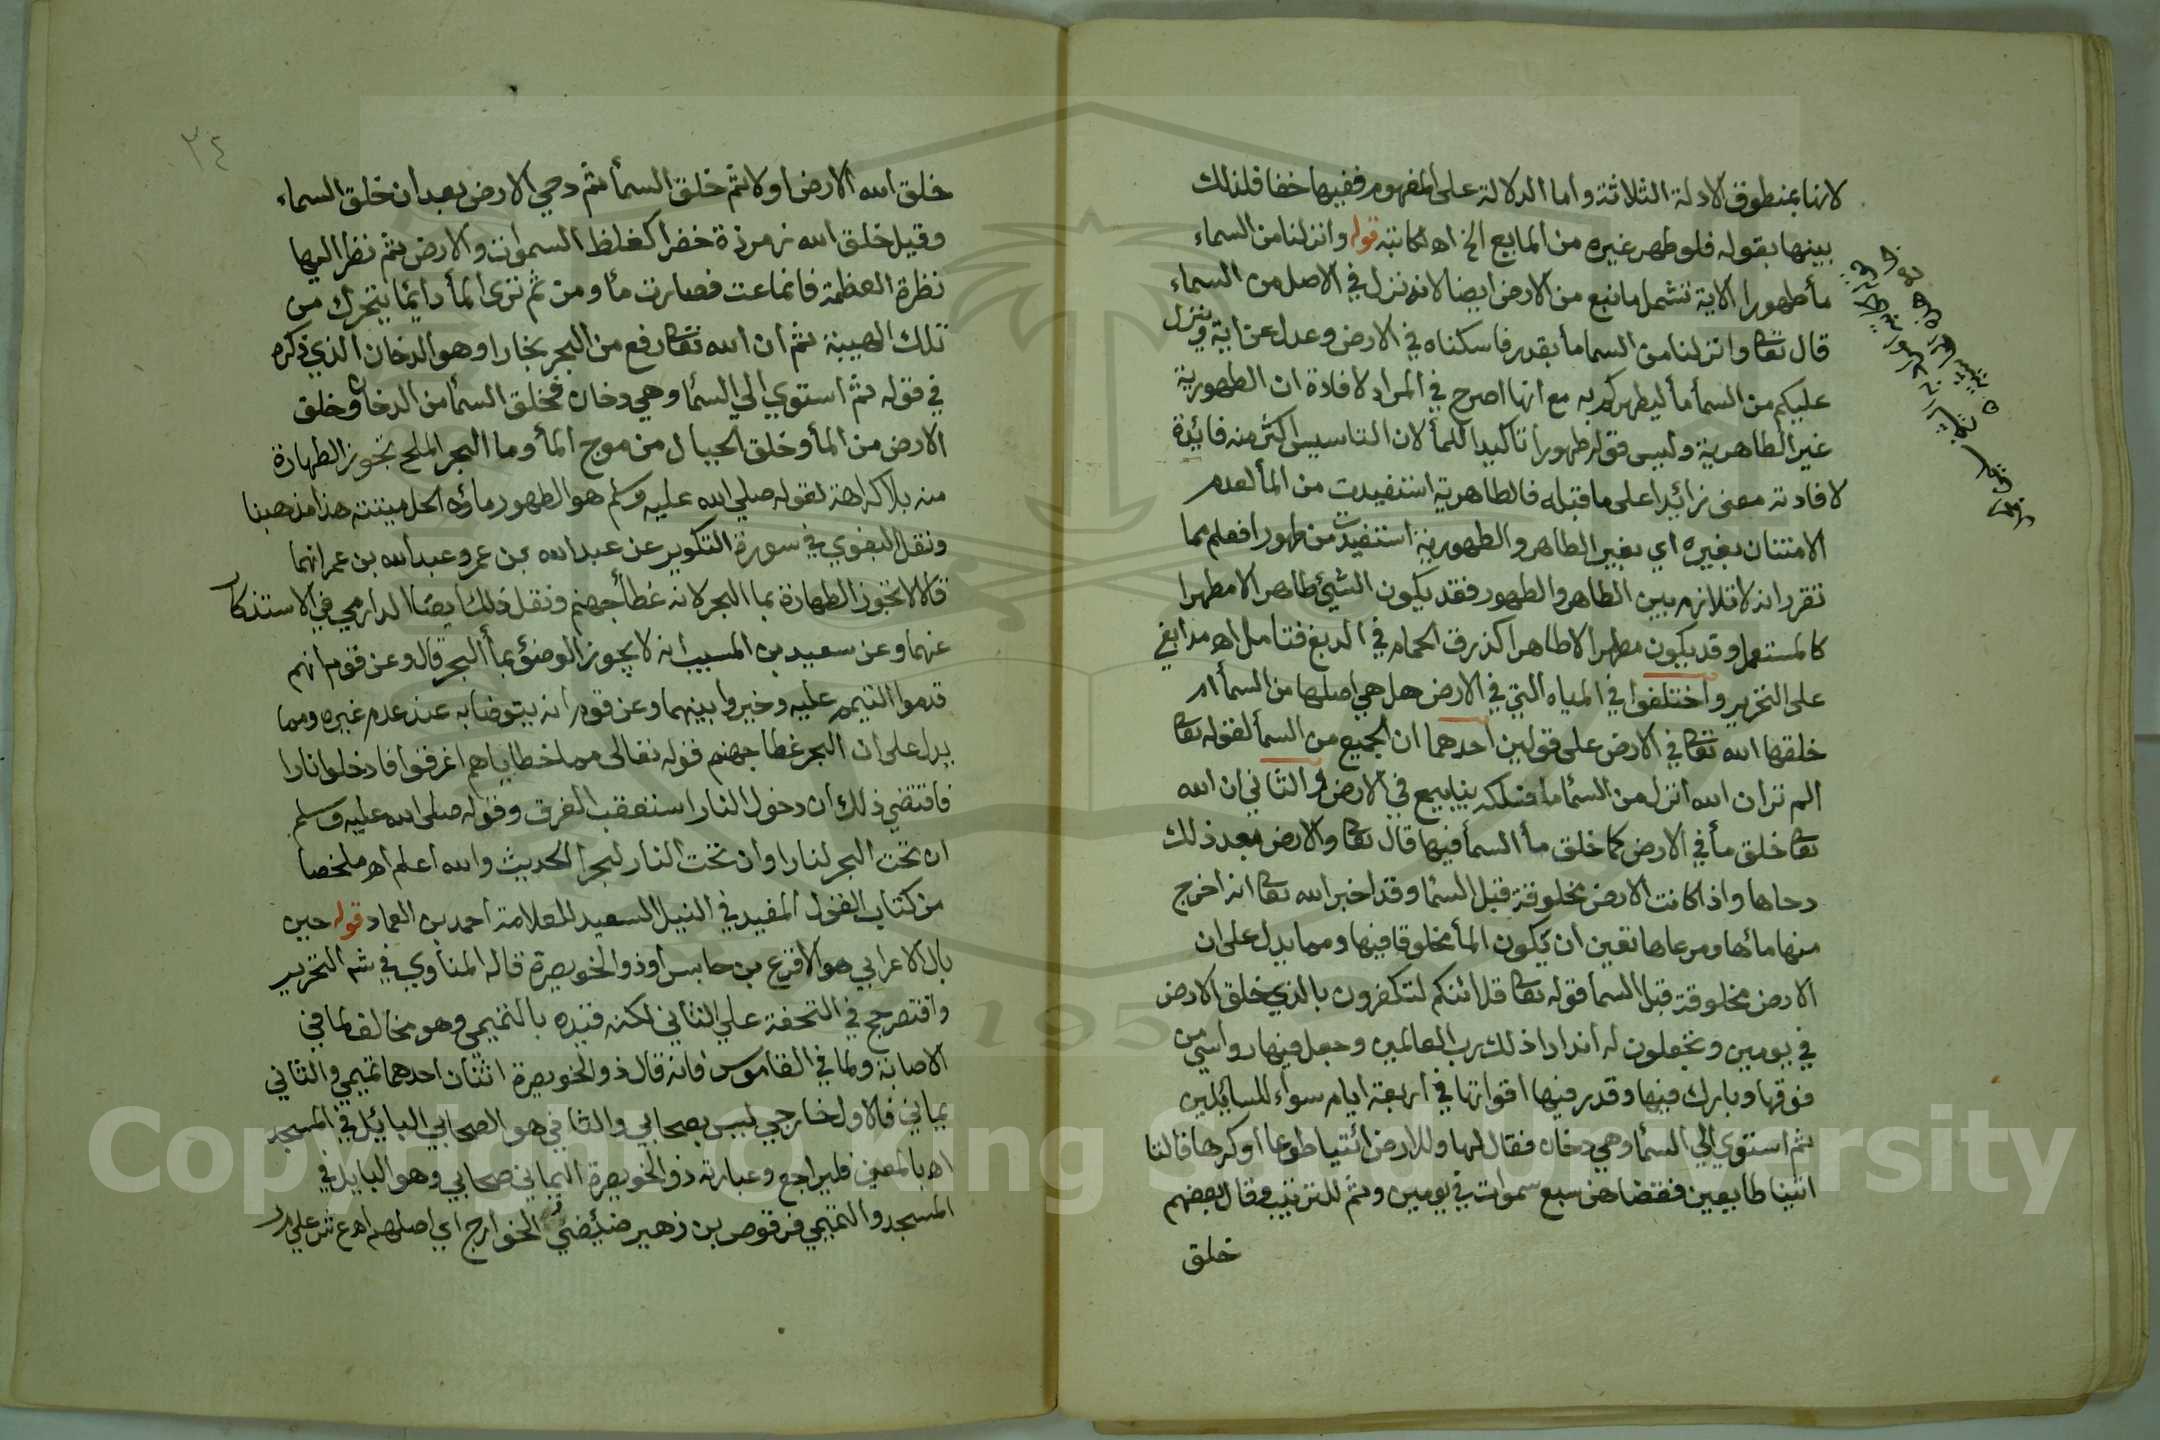 لانها بمنطوق الادلة الثلاثة واما الدلالة على المفهوم ففيها خفا فلذلك
بينها بقوله فلو طهر غيره من المايع الخ اه لكاتبه قوله وانزلنا من السماء
مأ طهورا الاية تشمل ما نبع من الارض ايضا لانه نزل في الاصل من السماء
قال تعا وانزلنا من السما ما بقدر فاسكناه في الارض وعدل عن اية وينزل
عليكم من السمأ مأ ليطهركم به مع انها اصرح في المراد لافادة ان الطهورية
غير الطاهرية وليس قوله طهورا تاكيدا للمأ لان التاسيس اكثر منه فايدة
لافادته معنى زائدا على ما قبله فالطاهرية استفيدت من المأ لعدم
الامتنان بغيره اي بغير الطاهر والطهورية استفيدت من طهورا فعلم مما
تقرر انه لا تلازم بين الطاهر والطهور فقد يكون الشيئ طاهرا لا مطهرا
كالمستعمل وقد يكون مطهرا لا طاهرا كذرق الحمام في الدبغ فتامل اه مدابغي
على التحرير واختلفوا في المياه التي في الارض هل هي اصلها من السمأ ام
خلقها الله تعا في الارض على قولين احدهما ان الجميع من السمأ لقوله تعا
الم تر ان الله انزل من السما ما فسلكه ينابيع في الارض والثاني ان الله
تعا خلق مأ في الارض كما خلق مأ السمأ فيها قال تعا والارض بعد ذلك
دحاها واذا كانت الارض مخلوقة قبل السما وقد اخبر الله تعا انه اخرج
منها مائها ومرعاها تعين ان يكون المأ مخلوقا فيها ومما يدل على ان
الارض مخلوقة قبل السما قوله تعا قل ائنكم لتكفرون بالذي خلق الارض
في يومين وتجعلون له اندادا ذلك رب العالمين وجعل فيها رواسي من
فوقها وبارك فيها وقدر فيها اقواتها في اربعة ايام سواء للسائلين
ثم استوي الي السمأ وهي دخان فقال لها وللارض ائتيا طوعا او كرها قالتا
اتينا طايعين فقضاهن سبع سموات في يومين وثم للترتيب وقال بعضهم
خلق
٢٤
خلق الله الارض اولا ثم خلق السمأ ثم دحي الارض بعد ان خلق السماء
وقيل خلق الله زمرذة خضرا كغلظ السموات والارض ثم نظر اليها
نظرة العظمة فانماعت فصارت مأ ومن ثم تري المأ دائما يتحرك من
تلك الهيبة ثم ان الله تعا رفع من البحر بخارا وهو الدخان الذي ذكره
في قوله ثم استوي الي السمأ وهي دخان فخلق السمأ من الدخان وخلق
الارض من المأ وخلق الجبال من موج المأ وما البحر الملح تجوز الطهارة
منه بلا كراهة لقوله صلي الله عليه وسلم هو الطهور ماؤه الحل ميتته هذا مذهبنا
ونقل البغوي في سورة التكوير عن عبد الله بن عمر وعبد الله بن عمر انهما
قالا لا تجوز الطهارة بما البحر لانه غطأ جهنم ونقل ذلك ايضا الدارمي في الاستذكار
عنهما وعن سعيد بن المسيب انه لا يجوز الوضؤ بمأ البحر قال وعن قوم انهم
قدموا التيمم عليه وخيروا بينهما وعن قوم انه يتوضا به عند عدم غيره ومما
يدل على ان البحر غطا جهنم قوله تعالى مما خطاياهم اغرقوا فادخلوا نارا
فاقتضي ذلك ان دخول النار استعقب الغرق وقوله صلى الله عليه وسلم
ان تحت البحر لنارا وان تحت النار لبحرا الحديث والله اعلم اه ملخصا
من كتاب القول المفيد في النيل السعيد للعلامة احمد بن العماد قوله حين
بال الاعرابي هو الاقرع بن حابس او ذو الخويصرة قاله المناوي في شم التحرير
واقتصر حج في التحفة علي الثاني لكنه قيده بالتميمي وهو مخالف لما في
الاصابة ولما في القاموس فانه قال ذو الخويصرة اثنان احدهما تميمي والثاني
يماني فالاول خارجي ليس بصحابي والثاني هو الصحابي البايل في المسجد
اه بالمعني فليراجع وعبارته ذو الخويصرة اليماني صحابي وهو البايل في
المسجد والتميمي حرقوص بن زهير ضئضئ الخوارج اي اصلهم اه ع ش علي مر
Copyright © King Saud University
1957